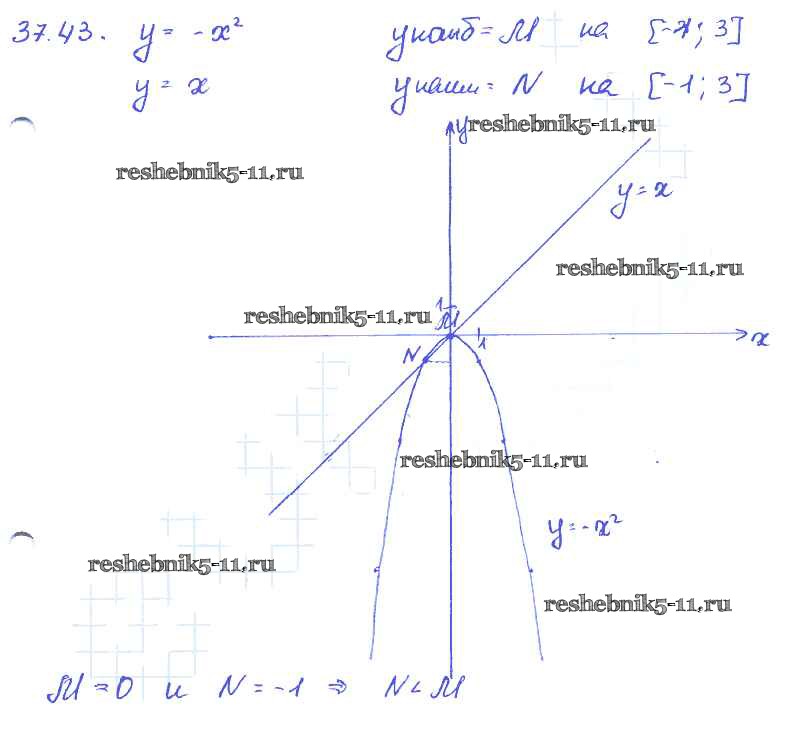 37.43. y = -x² yнаиб = M на [-1; 3]
y = x yнаим = N на [-1; 3]
y reshebnik5-11.ru
reshebnik5-11.ru
y = x
reshebnik5-11.ru
1
reshebnik5-11.ru M
1 x
N
reshebnik5-11.ru
y = -x²
reshebnik5-11.ru
reshebnik5-11.ru
M = 0 и N = -1 ⇒ N < M